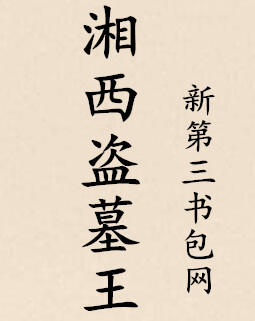 湘西盗墓王
新第三书包网